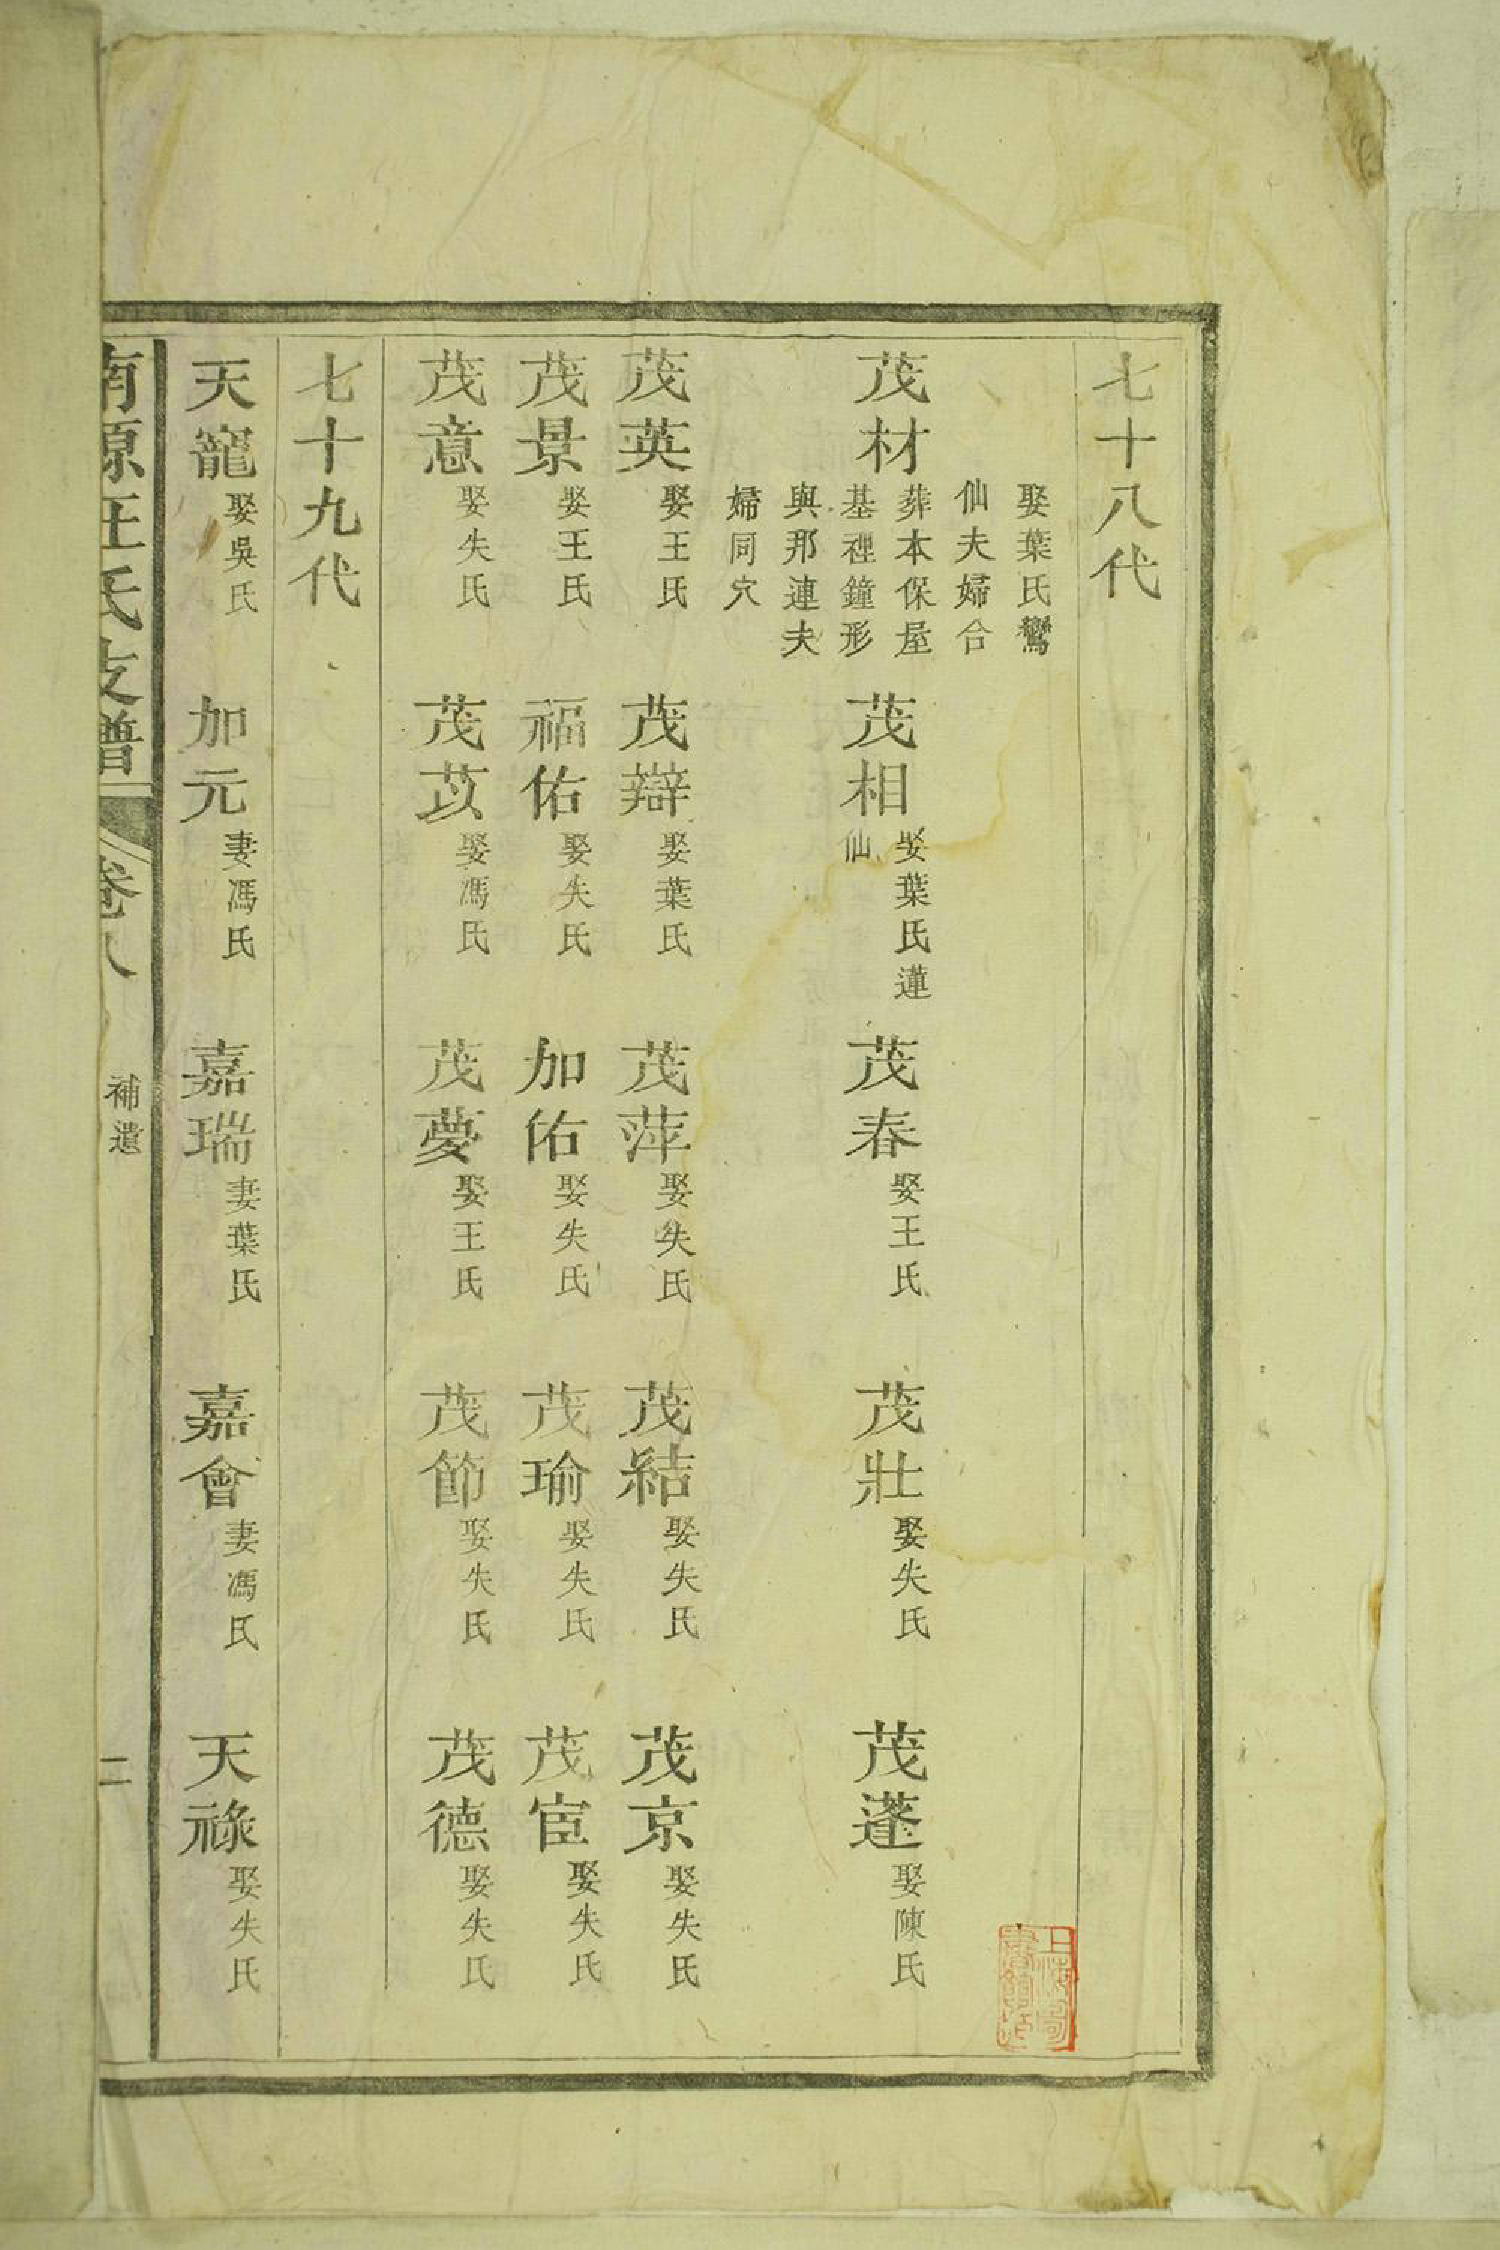 七十八代
茂材
娶葉氏鸞
仙夫婦合
葬本保屋
基裡鐘形
與邢連夫
婦同穴
茂相
娶葉氏蓮
仙
茂春 娶王氏
茂壯 娶失氏
茂蓬 娶陳氏
茂英 娶王氏
茂辯 娶葉氏
茂萍 娶失氏
茂結 娶失氏
茂京 娶失氏
茂景 娶王氏
福佑 娶失氏
加佑 娶失氏
茂瑜 娶失氏
茂宦 娶失氏
茂意 娶失氏
茂苡 娶馮氏
茂夢 娶王氏
茂節 娶失氏
茂德 娶失氏
七十九代
天寵 娶吳氏
加元 妻馮氏
嘉瑞 妻葉氏
嘉會 妻馮氏
天祿 娶失氏
南源汪氏支譜 卷八 補遺 二